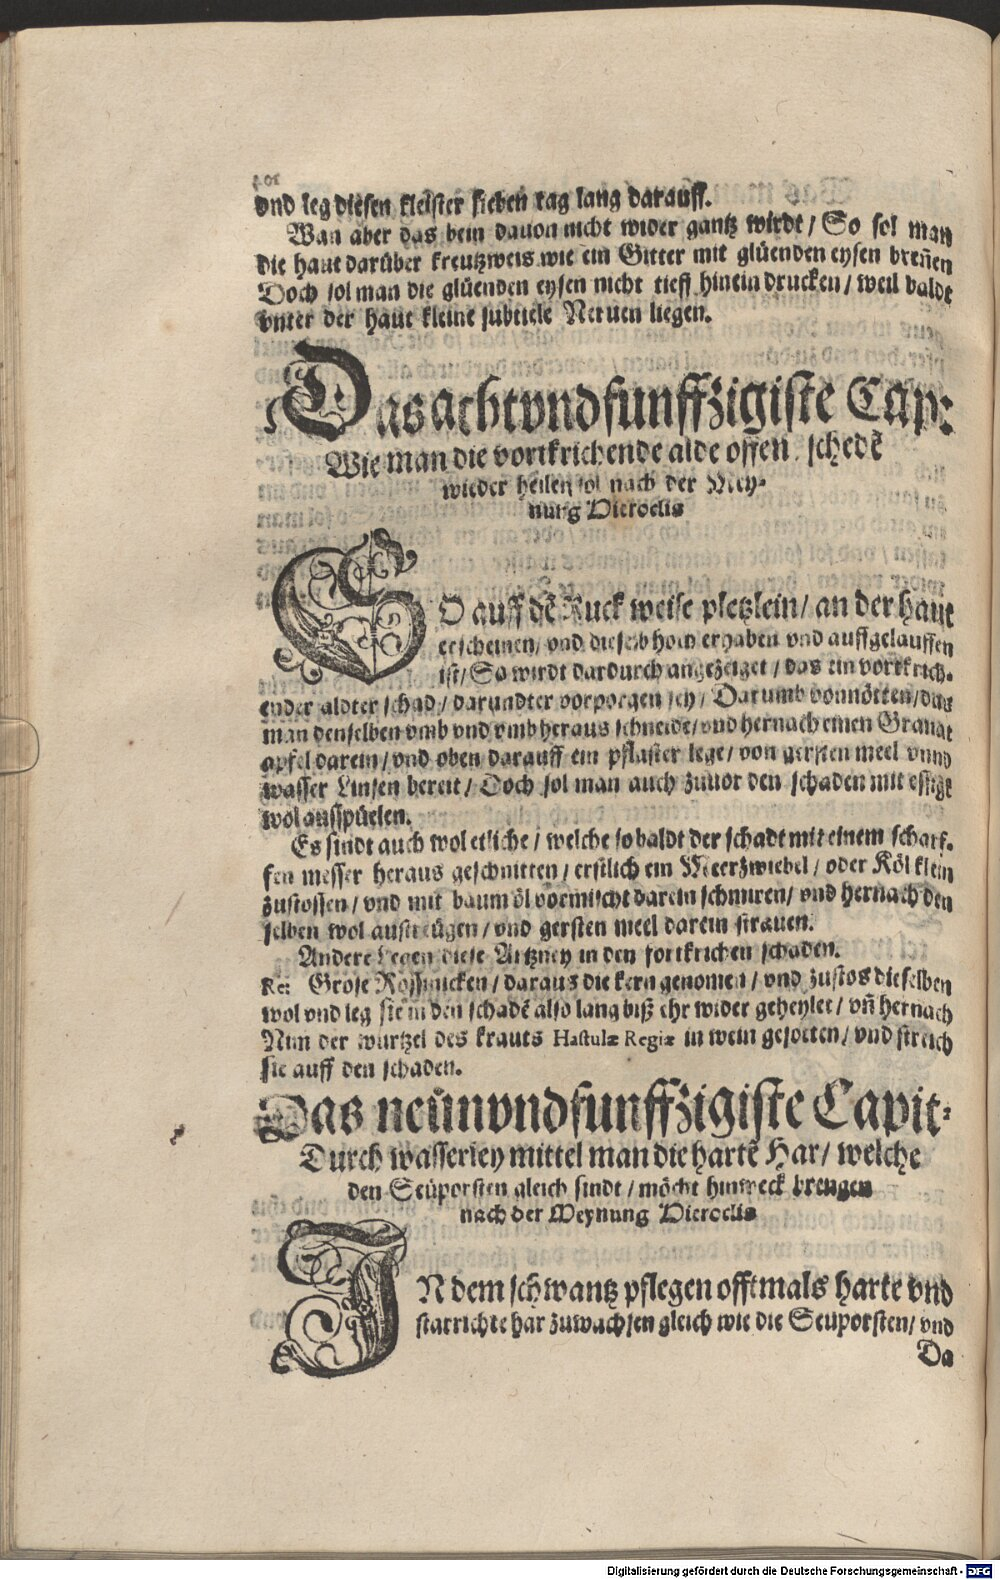 vnd leg diesen kleister sieben tag lang darauff.
Wan aber das bein dauon nicht wider gantz wirdt / So sol man
die haut darüber kreutzweis wie ein Gitter mit glüenden eysen breñen
Doch sol man die glüenden eysen nicht tieff hinein drucken / weil baldt
vnter der haut kleine subtiele Neruen liegen.
Das achtvndfunffzigiste Cap:
Wie man die vortkrichende alde offen schedẽ
wieder heilen sol nach der Mey-
nung Hieroclis
SO auff dẽ Ruck weise pletzlein / an der haut
erscheinen / vnd dieselb hoch erhaben vnd auffgelauffen
ist / So wirdt dardurch angezeiget / das ein vortkrich-
ender aldter schad / darundter vorporgen sey / Darumb vonnötten / das
man denselben vmb vnd vmb heraus schneide / vnd hernach einen Granat
apfel darein / vnd oben darauff ein pflaster lege / von gersten meel vnnd
wasser Linsen bereit / Doch sol man auch zuuor den schaden mit essige
wol ausspüelen.
Es sindt auch wol etliche / welche so baldt der schadt mit einem scharf-
fen messer heraus geschnitten / erstlich ein Meerzwiebel / oder Köl klein
zustossen / vnd mit baum öl vormischt darein schmiren / vnd hernach den
selben wol austreügen / vnd gersten meel darein strauen.
Andere legen diese Artzney in den fortkrichen schaden.
Re: Grose Roshincken / daraus die kern genomen / vnd zustos dieselben
wol vnd leg sie in den schadẽ also lang biß ehr wider geheylet / vñ hernach
Nim der wurtzel des krauts Hastulæ Regiæ in wein gesotten / vnd streich
sie auff den schaden.
Das neünvndfunffzigiste Capit-
Durch wasserley mittel man die hartẽ Har / welche
den Seüporsten gleich sindt / möcht hinweck brengen
nach der Meynung Hieroclis
IN dem schwantz pflegen offtmals harte vnd
starrichte har zuwachsen gleich wie die Seuporsten / vnd
Da
Digitalisierung gefördert durch die Deutsche Forschungsgemeinschaft - DFG